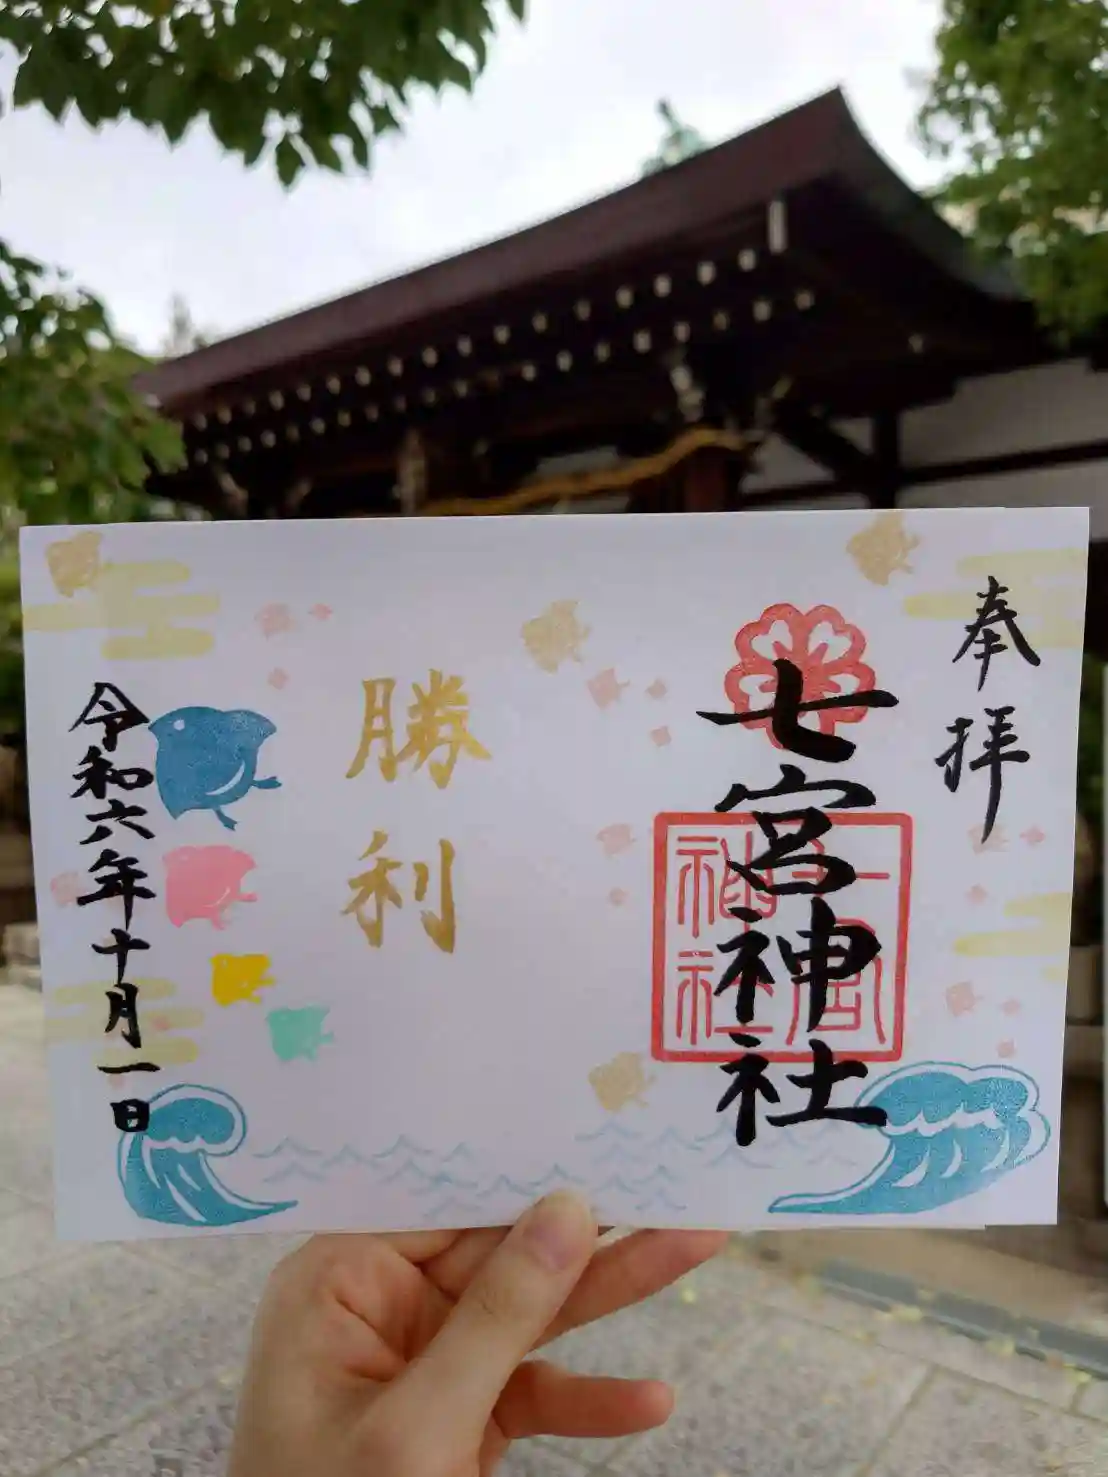 奉拝
七宮神社
七宮
神社
勝利
令和六年十月一日